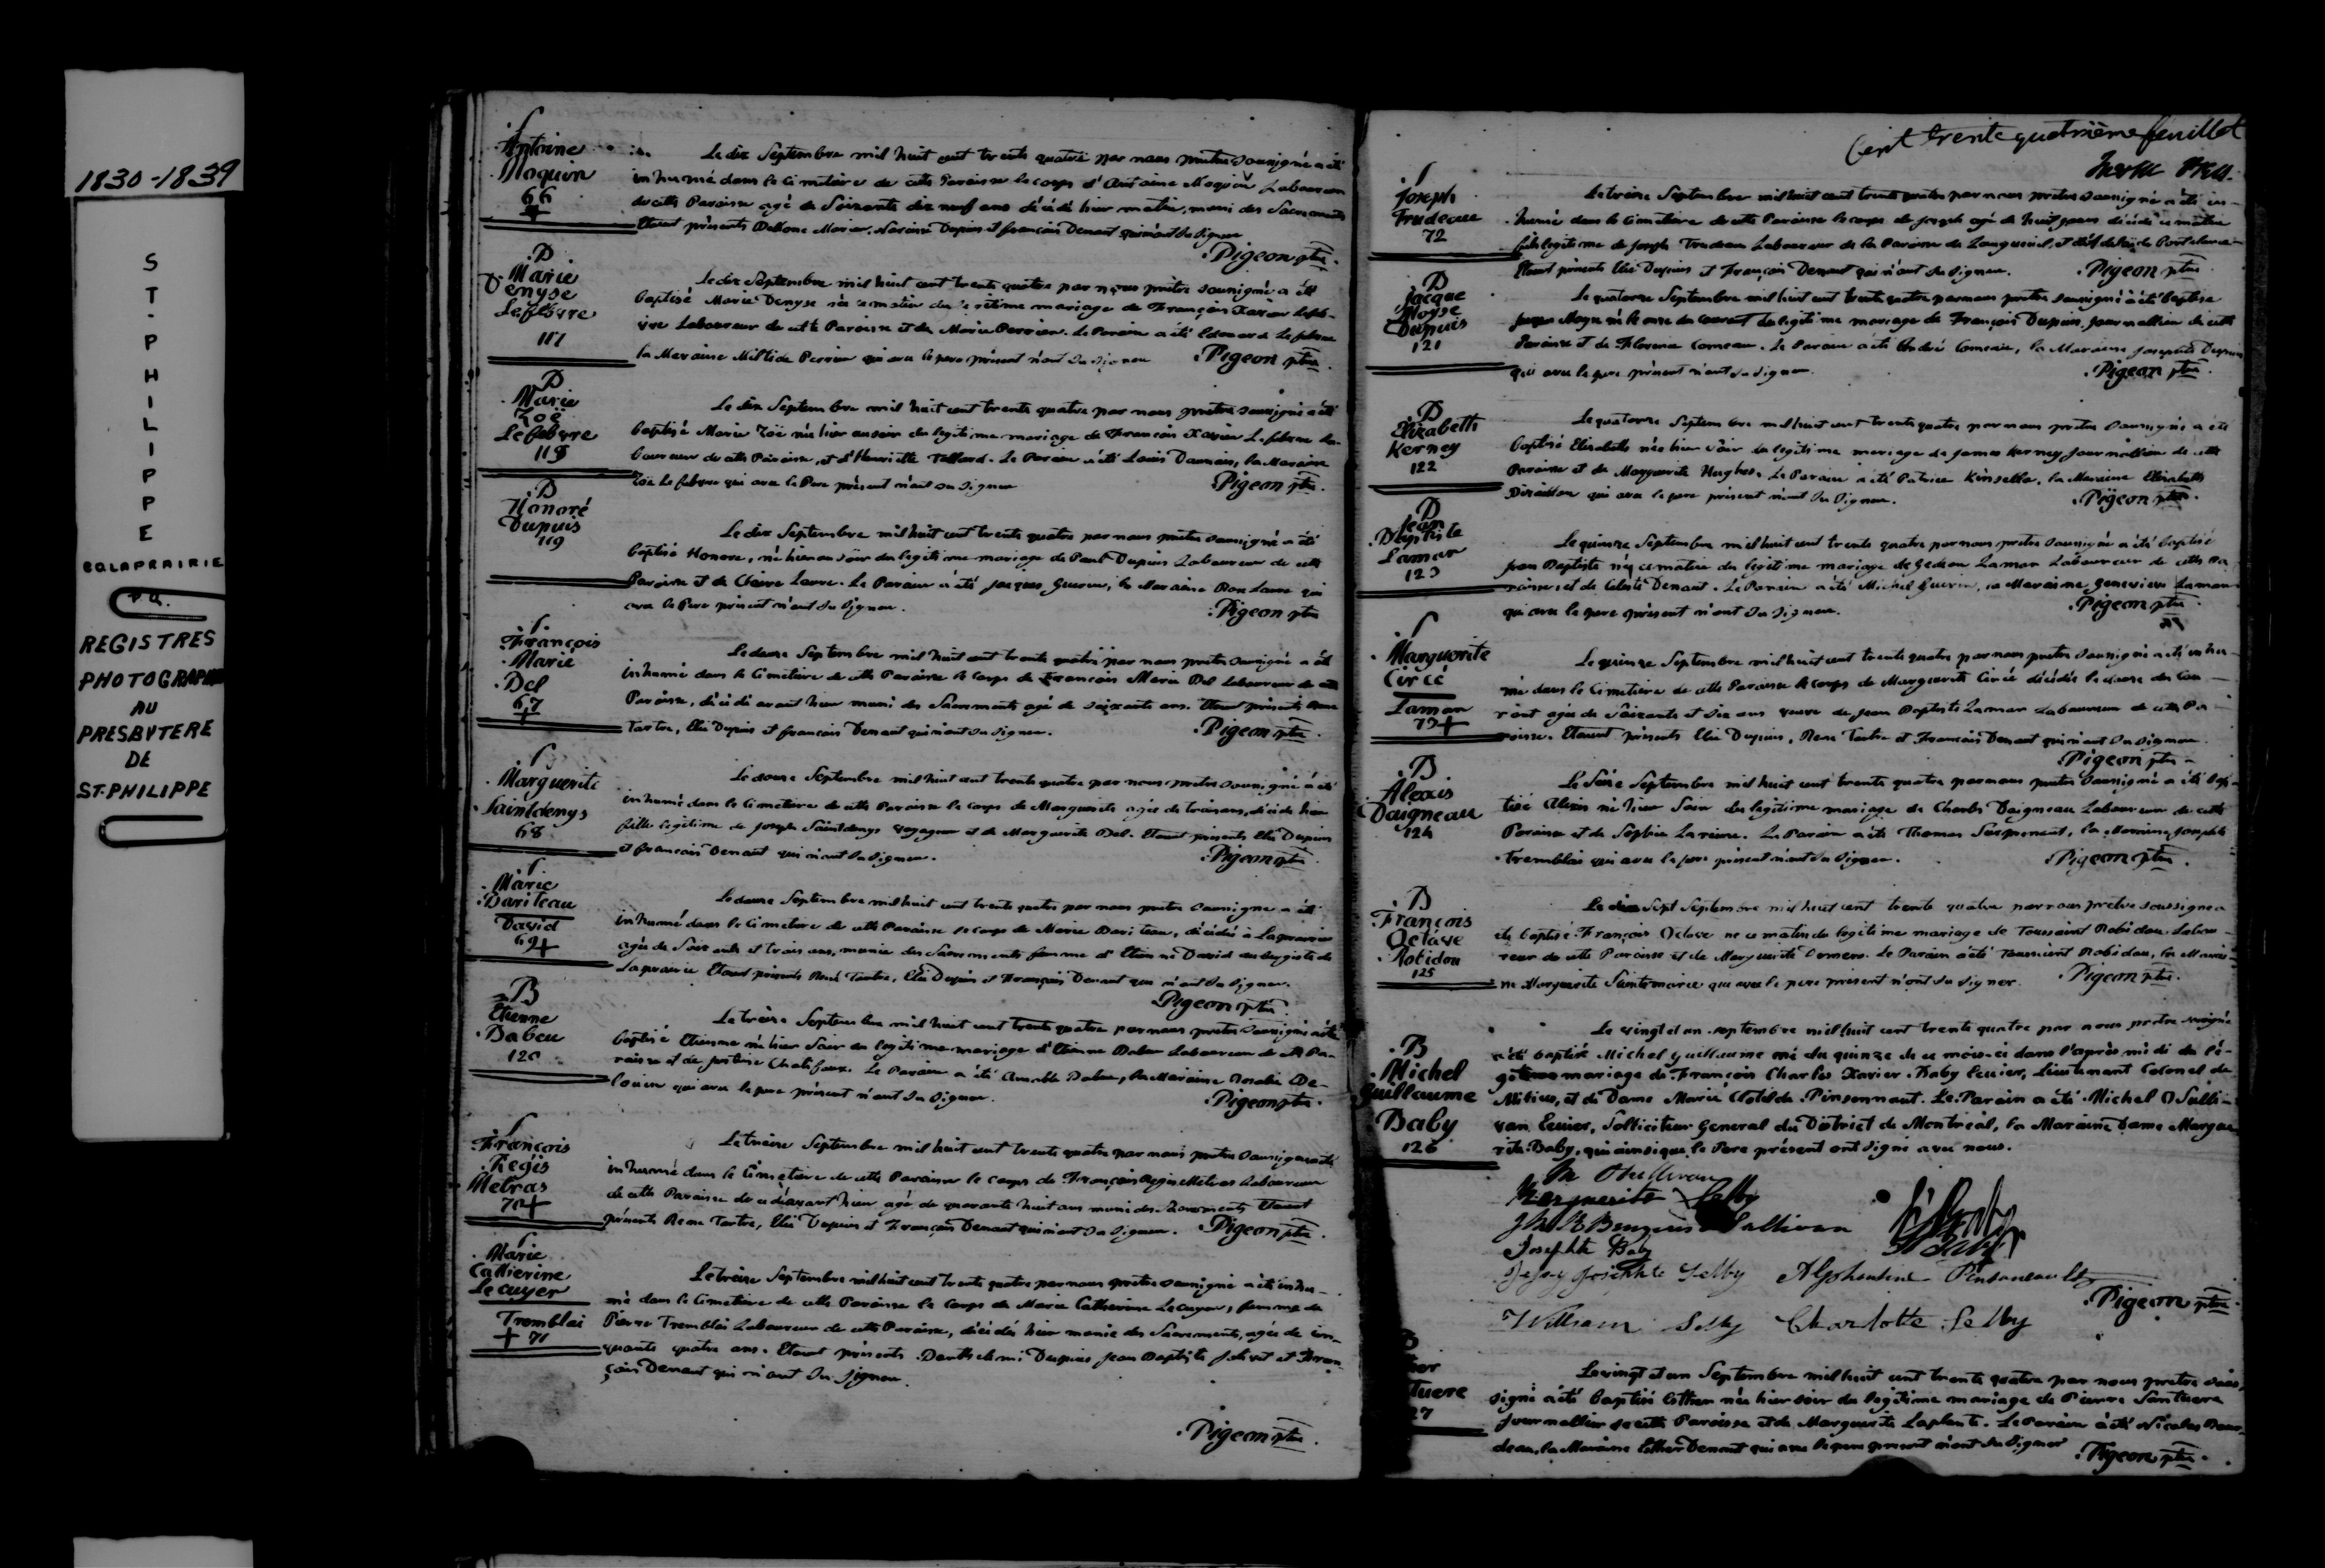 1830-1839
S
T
.
P
H
I
L
I
P
P
E
CO LAPRAIRIE
P.Q.
REGISTRES
PHOTOGRAPHIES
AU
PRESBYTERE
DE
ST. PHILIPPE
S
Antoine
Moquin
66
+
Le dix Septembre mil huit cent trente quatre par nous prêtre soussigné a été
inhumé dans le Cimetiere de cette Paroisse le corps d'Antoine Moquin Laboureur
de cette Paroisse agé de Soixante dix neuf ans décédé hier matin, muni des Sacrements
Etaient présents Narcisse Dupuis et françois Denaut qui n'ont su signer
Pigeon ptre.
B
Marie
Denyse
Lefebvre
117
Le dix Septembre mil huit cent trente quatre par nous prêtre soussigné a été
baptisé Marie Denyse née ce matin du légitime mariage de François Xavier Lefeb-
vre Laboureur de cette Paroisse et de Marie Perrier. Le Parain a été Edouard Lefebvre
la Maraine qui avec le pere présent n'ont su signer Pigeon ptre.
B
Marie
Zoë
Lefebvre
118
Le dix Septembre mil huit cent trente quatre par nous prêtre soussigné a été
baptisé Marie Zoë née hier au soir du legitime mariage de François Xavier Lefebvre La-
boureur de cette Paroisse, et d'Henriette . Le Parain a été Louis , la Maraine
Zoë Lefebvre qui avec le Pere présent n'ont su signer Pigeon ptre.
B
Honoré
Dupuis
119
Le dix Septembre mil huit cent trente quatre par nous prêtre soussigné a été
baptisé Honore, né hier au soir du legitime mariage de Paul Dupuis Laboureur de cette
Paroisse et de Claire . Le Parain a été Jacques , la Maraine qui
avec le Pere présent n'ont su signer. Pigeon ptre
S
François
Marie
Del
67
+
Le douze Septembre mil huit cent trente quatre par nous prêtre soussigné a été
inhumé dans le Cimetiere de cette Paroisse le corps de François Marie Del Laboureur de cette
Paroisse, décédé avant hier muni des Sacrements agé de soixante ans. Etaient présents René
Tartre, Elie Dupuis et françois Denaut qui n'ont su signer. Pigeon ptre
S
Marguerite
Saintdenys
68
Le douze Septembre mil huit cent trente quatre par nous prêtre soussigné a été
inhumé dans le Cimetiere de cette Paroisse le corps de Marguerite agée de trois ans, décédée hier
fille legitime de Joseph Saintdenys voyageur et de Marguerite Del. Etaient présents Elie Dupuis
et françois Denaut qui n'ont su signer. Pigeon ptre
S
Marie
Bariteau
David
69+
Le douze Septembre mil huit cent trente quatre par nous prêtre soussigné a été
inhumé dans le Cimetiere de cette Paroisse le corps de Marie Bariteau, décédée à Laprairie
agée de Soixante et trois ans, munie des Sacrements femme d'Etienne David aubergiste de
Laprairie Etaient présents René Tartre, Elie Dupuis et François Denaut qui n'ont su signer.
Pigeon ptre
B
Etienne
Babeu
120
Le treize Septembre mil huit cent trente quatre par nous prêtre soussigné a été
baptisé Etienne né hier Soir du legitime mariage d'Etienne Babeu Laboureur de cette Pa-
roisse et de Justine Chatifoux. Le Parain a été Amable Babeu, la Maraine Rosalie
qui avec le pere présent n'ont su signer. Pigeon ptre.
S
François
Regis
Metras
70+
Le treize Septembre mil huit cent trente quatre par nous prêtre soussigné a été
inhumé dans le Cimetiere de cette Paroisse le corps de François Regis Metras Laboureur
de cette Paroisse décédé avant hier agé de quarante huit ans muni des Sacrements Etaient
présents René Tartre, Elie Dupuis et François Denaut qui n'ont su signer. Pigeon ptre.
S
Marie
Catherine
Lecuyer
Tremblai
+ 71
Le treize Septembre mil huit cent trente quatre par nous prêtre soussigné a été inhu-
mé dans le Cimetiere de cette Paroisse le Corps de Marie Catherine Lecuyer, femme de
Pierre Tremblai Laboureur de cette Paroisse, décédée hier munie des Sacrements, agée de cin-
quante quatre ans. Etaient présents Barthelemi Dupuis Jean Baptiste et Fran-
çois Denaut qui n'ont su signer.
Pigeon ptre.
Cent trente quatrième feuillet
S
Joseph
Trudeau
72
Le treize Septembre mil huit cent trente quatre par nous prêtre soussigné a été in-
humé dans le Cimetiere de cette Paroisse le corps de Joseph agé de huit jours décédé ce matin
fils legitime de Joseph Trudeau Laboureur de la Paroisse de Longueuil, et
Etaient présents Elie Dupuis et François Denaut qui n'ont su signer. Pigeon ptre
B
Jacque
Moyse
Dupuis
121
Le quatorze Septembre mil huit cent trente quatre par nous prêtre soussigné a été baptisé
Jacque Moyse né le onze du courant du legitime mariage de François Dupuis, journallier de cette
Paroisse et de Florence Comeau. Le Parain a été André Comeau, la Maraine Josephte Dupuis
qui avec le pere présent n'ont su signer. Pigeon ptre.
B
Elizabeth
Kerney
122
Le quatorze Septembre mil huit cent trente quatre par nous prêtre soussigné a été
baptisé Elizabeth née hier Soir du legitime mariage de James Kerney Journallier de cette
Paroisse et de Marguerite Hughes. Le Parain a été Patrice Kinsella, la Maraine Elizabeth
qui avec le pere présent n'ont su signer. Pigeon ptre.
B
Jean
Baptiste
Lamar
123
Le quinze Septembre mil huit cent trente quatre par nous prêtre soussigné a été baptisé
Jean Baptiste né ce matin du legitime mariage de Gedeon Lamar Laboureur de cette Pa
roisse et de Celeste Denaut. Le Parain a été Michel Guerin, la Maraine Genevieve Lamar
qui avec le pere présent n'ont su signer. Pigeon ptre.
S
Marguerite
Circé
Lamar
73+
Le quinze Septembre mil huit cent trente quatre par nous prêtre soussigné a été inhu-
mé dans le Cimetiere de cette Paroisse le corps de Marguerite Circé décédée le douze du Cou-
rant agée de Soixante et dix ans veuve de Jean Baptiste Lamar Laboureur de cette Pa-
roisse. Etaient présents Elie Dupuis, René Tartre et François Denaut qui n'ont su signer.
Pigeon ptre
B
Alexis
Daigneau
124
Le Seize Septembre mil huit cent trente quatre par nous prêtre soussigné a été bap-
tisé Alexis né hier Soir du legitime mariage de Charles Daigneau Laboureur de cette
Paroisse et de Sophie Lariviere. Le Parain a été Thomas , la Maraine Josephte
Tremblai qui avec le pere présent n'ont su signer. Pigeon ptre.
B
François
Octave
Robidou
125
Le dix Sept Septembre mil huit cent trente quatre par nous prêtre soussigné a
été baptisé François Octave né ce matin du legitime mariage de Toussaint Robidou Labou-
reur de cette Paroisse et de Marguerite . Le Parain a été Toussaint Robidou, la Marai-
ne Marguerite Saintemarie qui avec le pere présent n'ont su signer. Pigeon ptre.
B
Michel
Guillaume
Baby
126
Le vingt et un septembre mil huit cent trente quatre par nous prêtre soussigné
a été baptisé Michel Guillaume né du quinze de ce mois-ci dans l'après midi du lé-
gitime mariage de François Charles Xavier Baby Ecuier, Lieutenant Colonel de
Milices, et de Dame Marie Clotilde Pinsonnaut. Le Parain a été Michel O Sulli-
van Ecuier, Solliciteur General du District de Montréal, la Maraine Dame Margue
rite Baby, qui ainsique le Pere présent ont signé avec nous.
M O'Sullivan
Marguerite Selby
Sullivan
Josephte Baby
Josephte Selby Alphonsine Pinsoneault
Pigeon ptre
William Selby Charlotte Selby
tuere
27
Le vingt et un Septembre mil huit cent trente quatre par nous prêtre sous-
signé a été baptisé Esther née hier soir du legitime mariage de Pierre
Journallier de cette Paroisse et de Marguerite Laplante. Le Parain a été Nicolas
, la Maraine Esther Denaut qui avec le pere présent n'ont su signer Pigeon ptre.